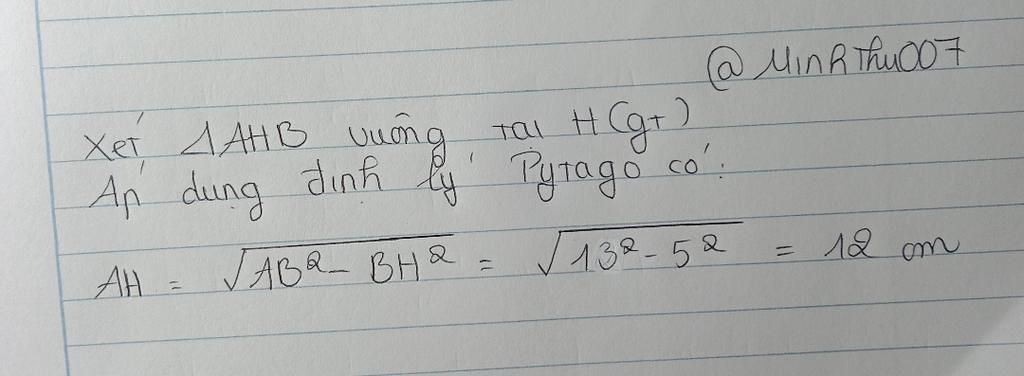 @MinhThu007
Xét ΔAHB vuông tại H(gt)
Áp dụng định lý Pytago có:
AH = √(AB² - BH²) = √(13² - 5²) = 12 cm